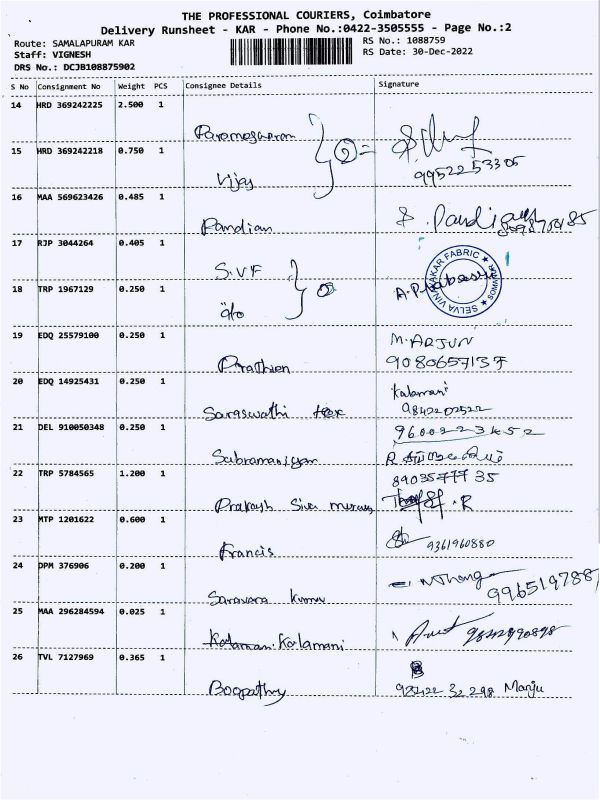 THE PROFESSIONAL COURIERS, Coimbatore
Delivery Runsheet - KAR - Phone No.:0422-3505555 - Page No.:2
Route: SAMALAPURAM KAR
Staff: VIGNESH
DRS No.: DCJB108875902
RS No.: 1088759
RS Date: 30-Dec-2022
S No Consignment No Weight PCS Consignee Details Signature
14 HRD 369242225 2.500 1
Parameswaran
15 HRD 369242218 0.750 1
Vijay
9952253305
16 MAA 569623426 0.485 1
Pandian
17 RJP 3044264 0.405 1
S.V.F
18 TRP 1967129 0.250 1
SELVA VINAYAKAR FABRIC
19 EDQ 25579100 0.250 1
M. ARJUN
9080657137
20 EDQ 14925431 0.250 1
Kalamani
Saraswathi tex 9842202522
21 DEL 910050348 0.250 1
9600223452
Subramaniyan
22 TRP 5784565 1.200 1
8903577735
Prakash
23 MTP 1201622 0.600 1
Francis 9361960880
24 DPM 376906 0.200 1
Saravana Kumar
25 MAA 296284594 0.025 1
Kalamani
26 TVL 7127969 0.365 1
Boopathy 9842232298 Manju